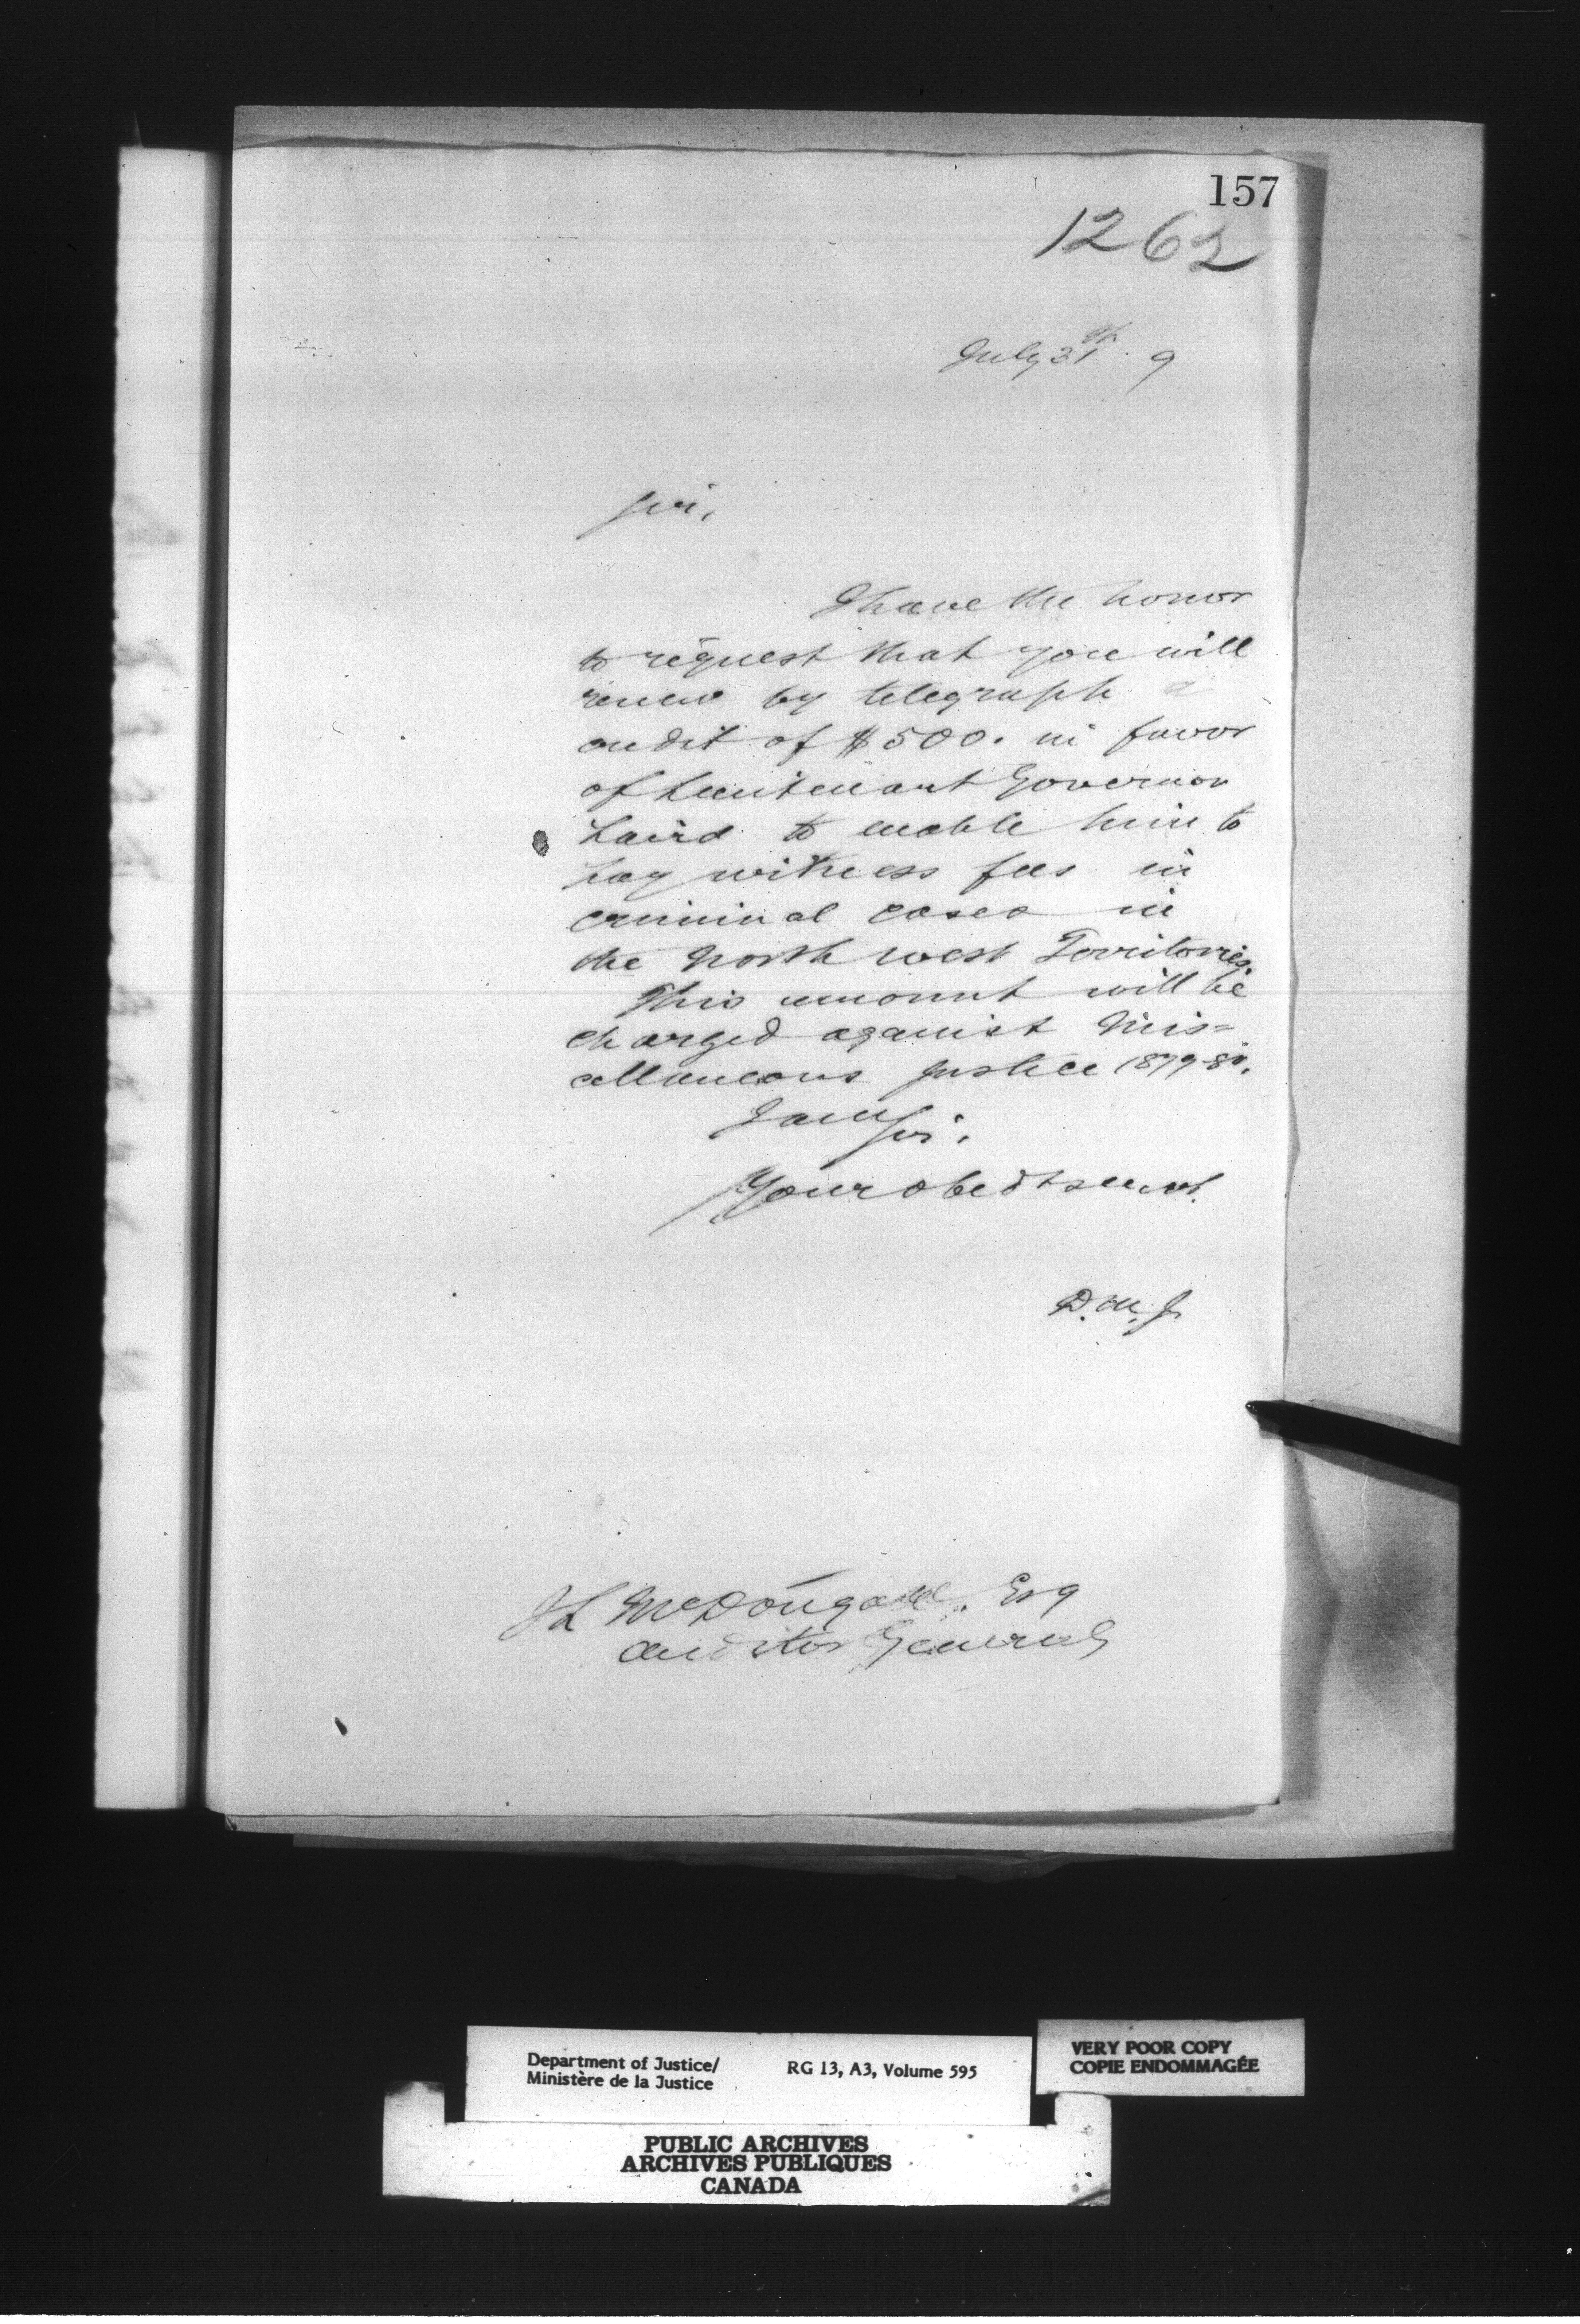 157
1262
July 31st. 9
Sir,
I have the honor
to request that you will
renew by telegraph a
credit of $500. in favor
of Lieutenant Governor
Laird to enable him to
pay witness fees in
criminal cases in
the North west Territories.
This amount will be
charged against Mis=
cellaneous Justice 1879-80.
I am Sir.
Your obedt servt.
D. M. J.
J L McDougall. Esq
Auditor General
Department of Justice/
Ministère de la Justice
RG 13, A3, Volume 595
VERY POOR COPY
COPIE ENDOMMAGÉE
PUBLIC ARCHIVES
ARCHIVES PUBLIQUES
CANADA